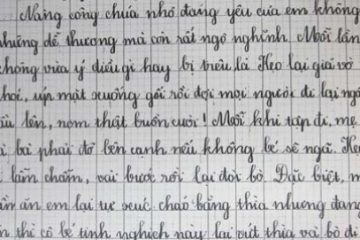 Nàng công chúa nhỏ đáng yêu của em không
những dễ thương mà còn rất ngộ nghĩnh. Mỗi lần
không vừa ý điều gì hay bị trêu là Kẹo lại giả vờ
úp mặt xuống gối rồi đợi mọi người đi lại
lên, nom thật buồn cười! Mỗi khi tập đi, mẹ
bà phải đỡ bên cạnh nếu không bé sẽ ngã. Kẹo
lẫm chẫm, vài bước rồi lại đòi bò. Đặc biệt, m
ăn em lại tự xúc cháo bằng thìa nhưng đang
thì cô bé tinh nghịch này lại vứt thìa và bò đi